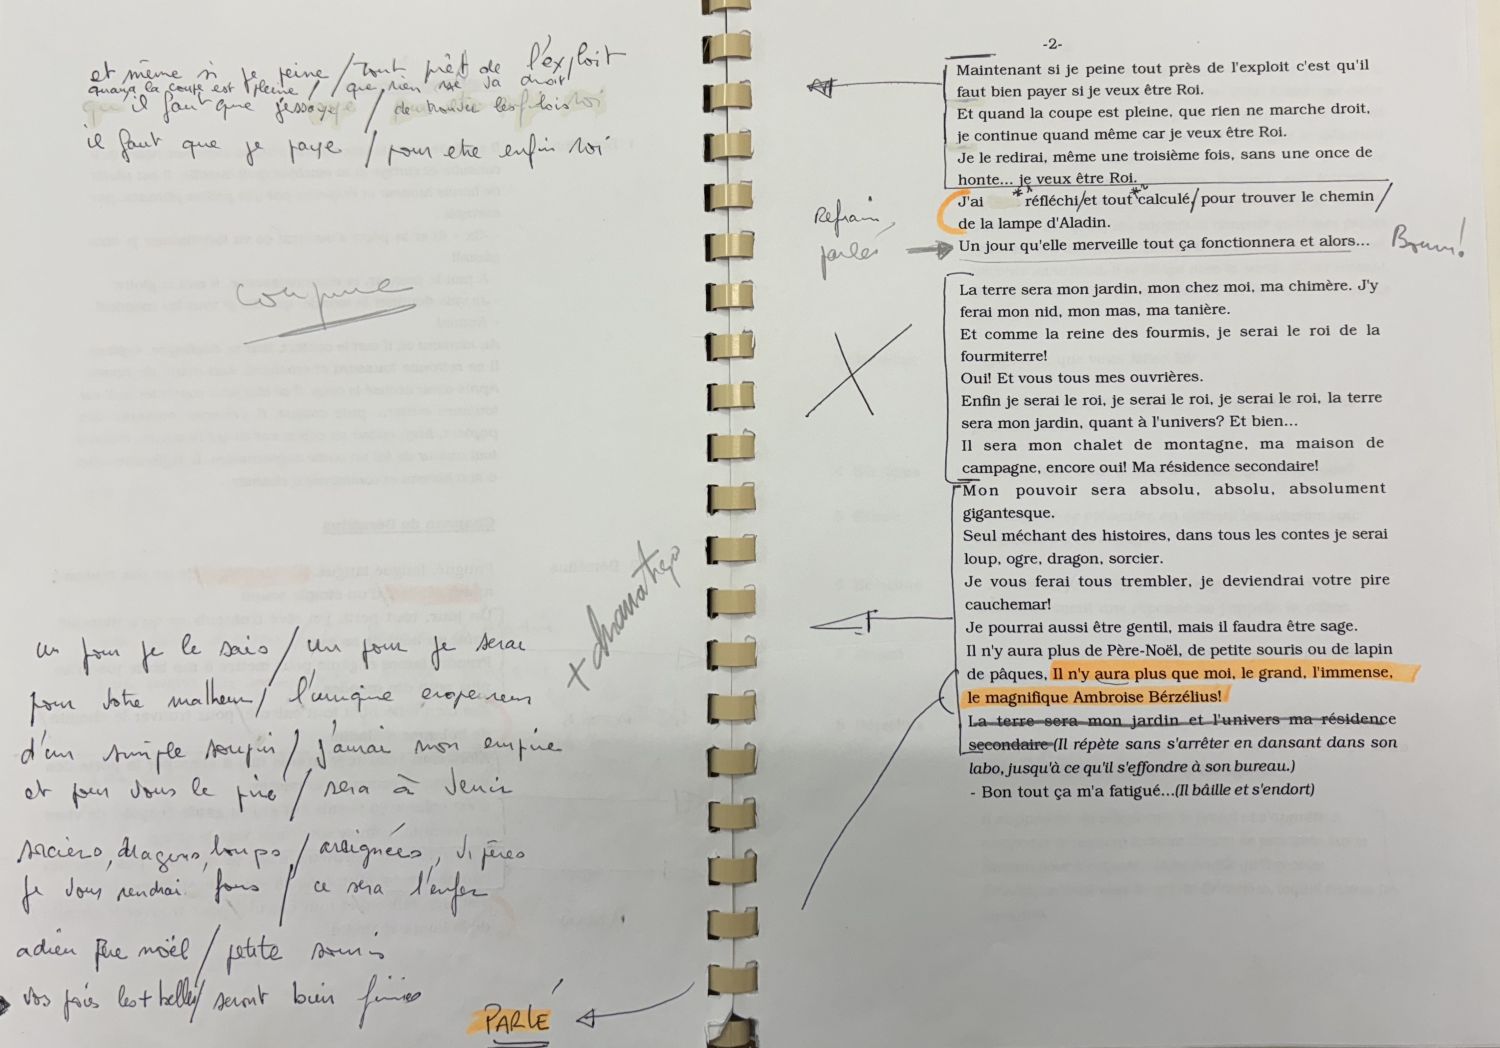 et même si je peine / tout prêt de l'exploit
quand la coupe est pleine / que rien ne va droit
il faut que j'essaye / de trouver les
il faut que je paye / pour etre enfin roi
coupure
+ dramatique
un jour je le sais / un jour je serai
pour votre malheur / l'unique empereur
d'un simple soupir / j'aurai mon empire
et pour vous le pire / sera à venir
sorciers, dragons, loups / araignées, vipères
je vous rendrai fous / ce sera l'enfer
adieu père noël / petite souris
vos joies les + belles / seront bien finies
PARLÉ
-2-
Maintenant si je peine tout près de l'exploit c'est qu'il
faut bien payer si je veux être Roi.
Et quand la coupe est pleine, que rien ne marche droit,
je continue quand même car je veux être Roi.
Je le redirai, même une troisième fois, sans une once de
honte... je veux être Roi.
Refrain parlé
J'ai réfléchi/et tout calculé/pour trouver le chemin/
de la lampe d'Aladin.
Un jour qu'elle merveille tout ça fonctionnera et alors...
La terre sera mon jardin, mon chez moi, ma chimère. J'y
ferai mon nid, mon mas, ma tanière.
Et comme la reine des fourmis, je serai le roi de la
fourmiterre!
Oui! Et vous tous mes ouvrières.
Enfin je serai le roi, je serai le roi, je serai le roi, la terre
sera mon jardin, quant à l'univers? Et bien...
Il sera mon chalet de montagne, ma maison de
campagne, encore oui! Ma résidence secondaire!
Mon pouvoir sera absolu, absolu, absolument
gigantesque.
Seul méchant des histoires, dans tous les contes je serai
loup, ogre, dragon, sorcier.
Je vous ferai tous trembler, je deviendrai votre pire
cauchemar!
Je pourrai aussi être gentil, mais il faudra être sage.
Il n'y aura plus de Père-Noël, de petite souris ou de lapin
de pâques, Il n'y aura plus que moi, le grand, l'immense,
le magnifique Ambroise Bérzélius!
La terre sera mon jardin et l'univers ma résidence
secondaire (Il répète sans s'arrêter en dansant dans son
labo, jusqu'à ce qu'il s'effondre à son bureau.)
- Bon tout ça m'a fatigué...(Il bâille et s'endort)